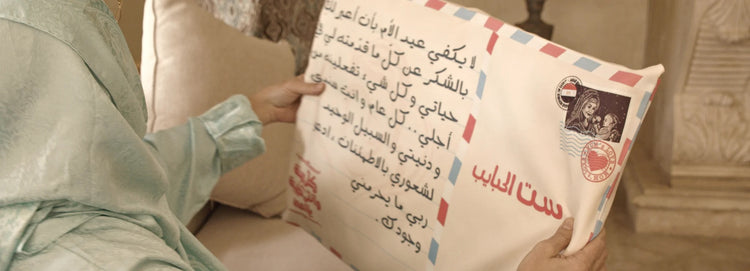 لا يكفي عيد الأم بأن أعبر لك
بالشكر عن كل ما قدمته لي في
حياتي وكل شيء تفعلينه من
أجلي.. كل عام وانت
ودنيتي والسبيل الوحيد
لشعوري بالاطمئنان، ادعو
ربي ما يحرمني
وجودك.
ست الحبايب